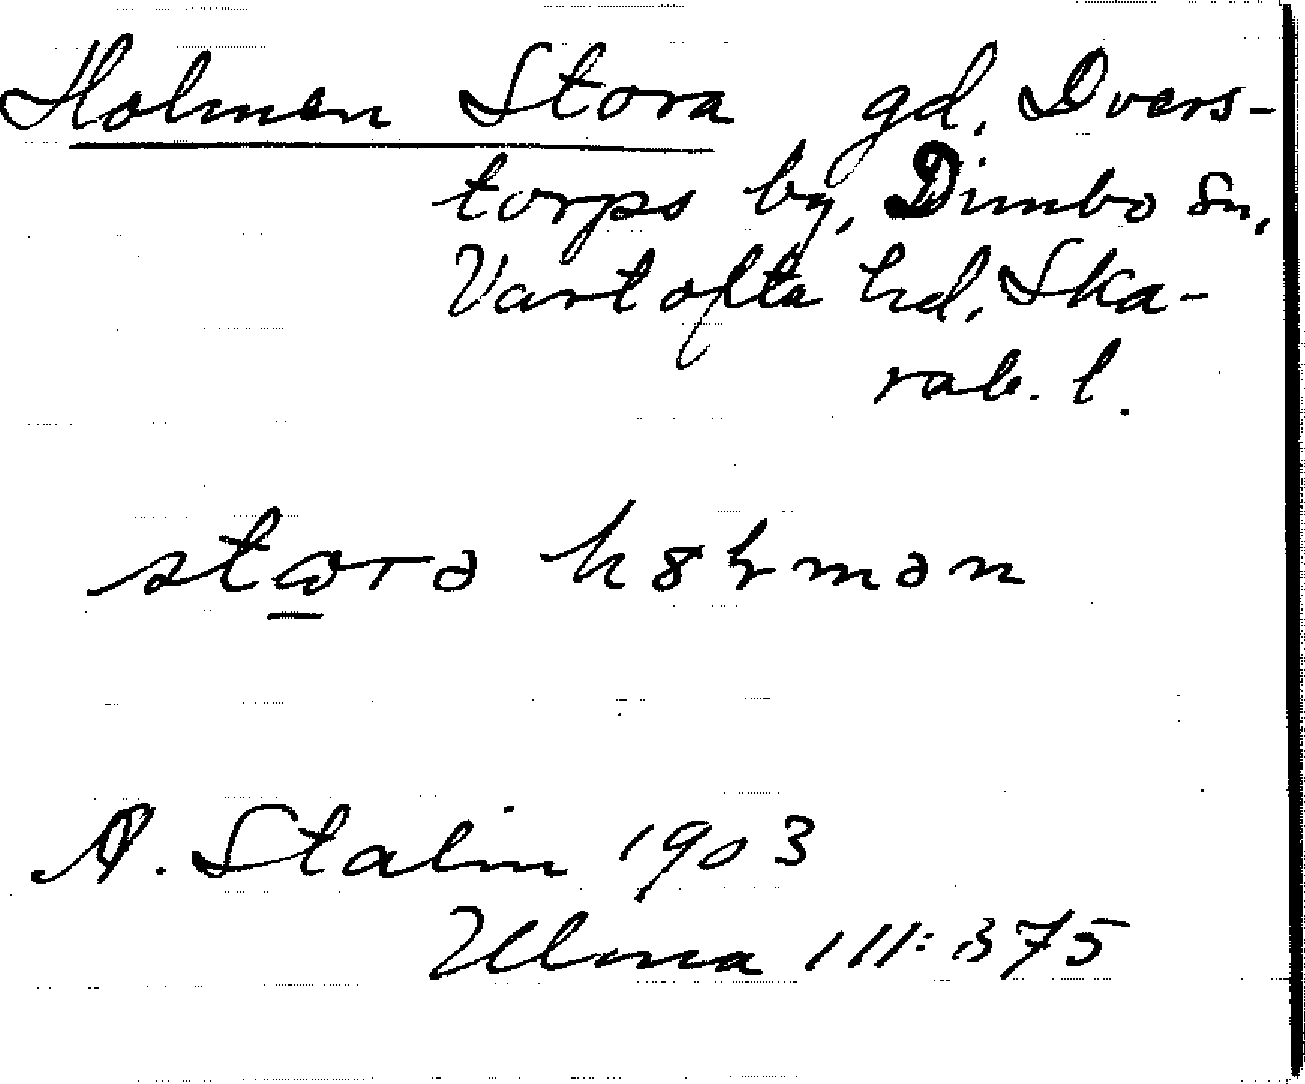 Holmen Stora gd, Dvers-
torps by, Dimbo sn,
Vartofta hd, Ska-
rab. l.
A. Stalin 1903
Ulma 111:375